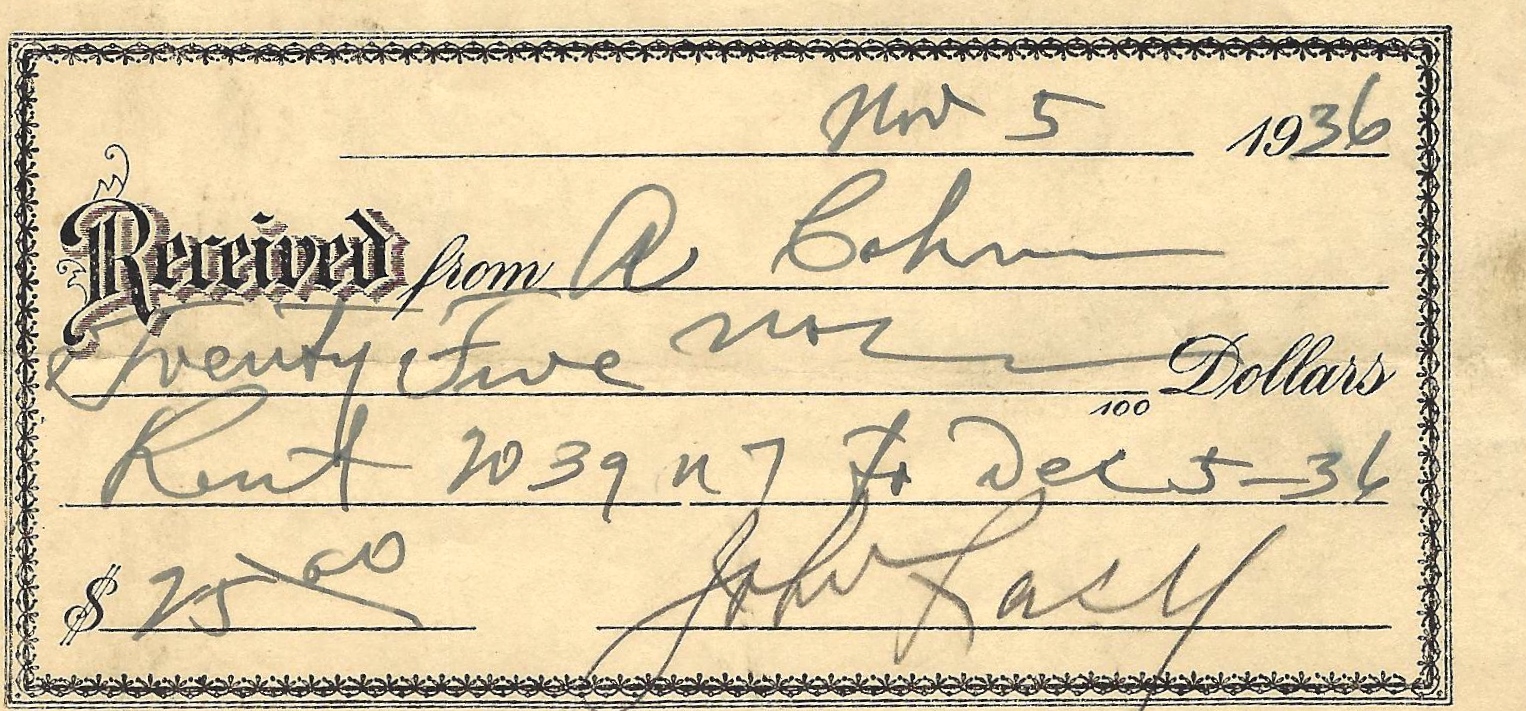 Nov 5 1936
Received from A Cohen
Twenty Five no/ 100 Dollars
Rent 2039 N 7 to Dec 5-36
$ 25 00 John